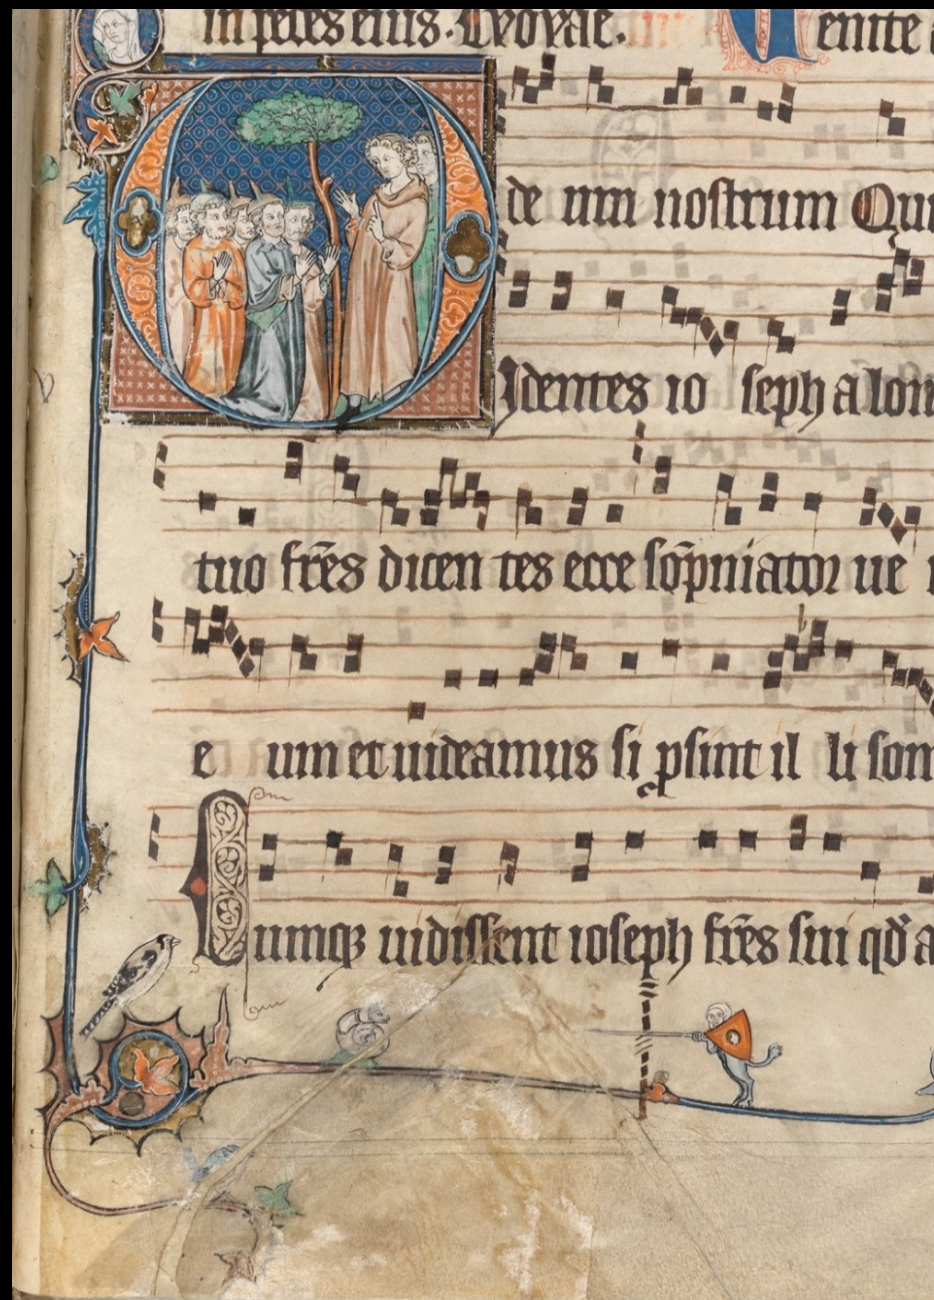 in partes eius. Evovae. Venite
de um nostrum Qui
Videntes io seph a lon
tuo fr̄es dicen tes ecce sōpniator ue
e um et uideamus si ꝑsint il li som
Cumqꝫ uidissent ioseph fr̄es sui qđ a